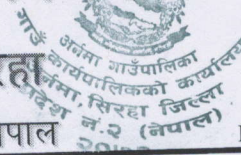 अर्नमा गाउँपालिका
गाउँ कार्यपालिकाको कार्यालय
अर्नमा, सिरहा जिल्ला
प्रदेश नं.२ (नेपाल)
रहा
नेपाल